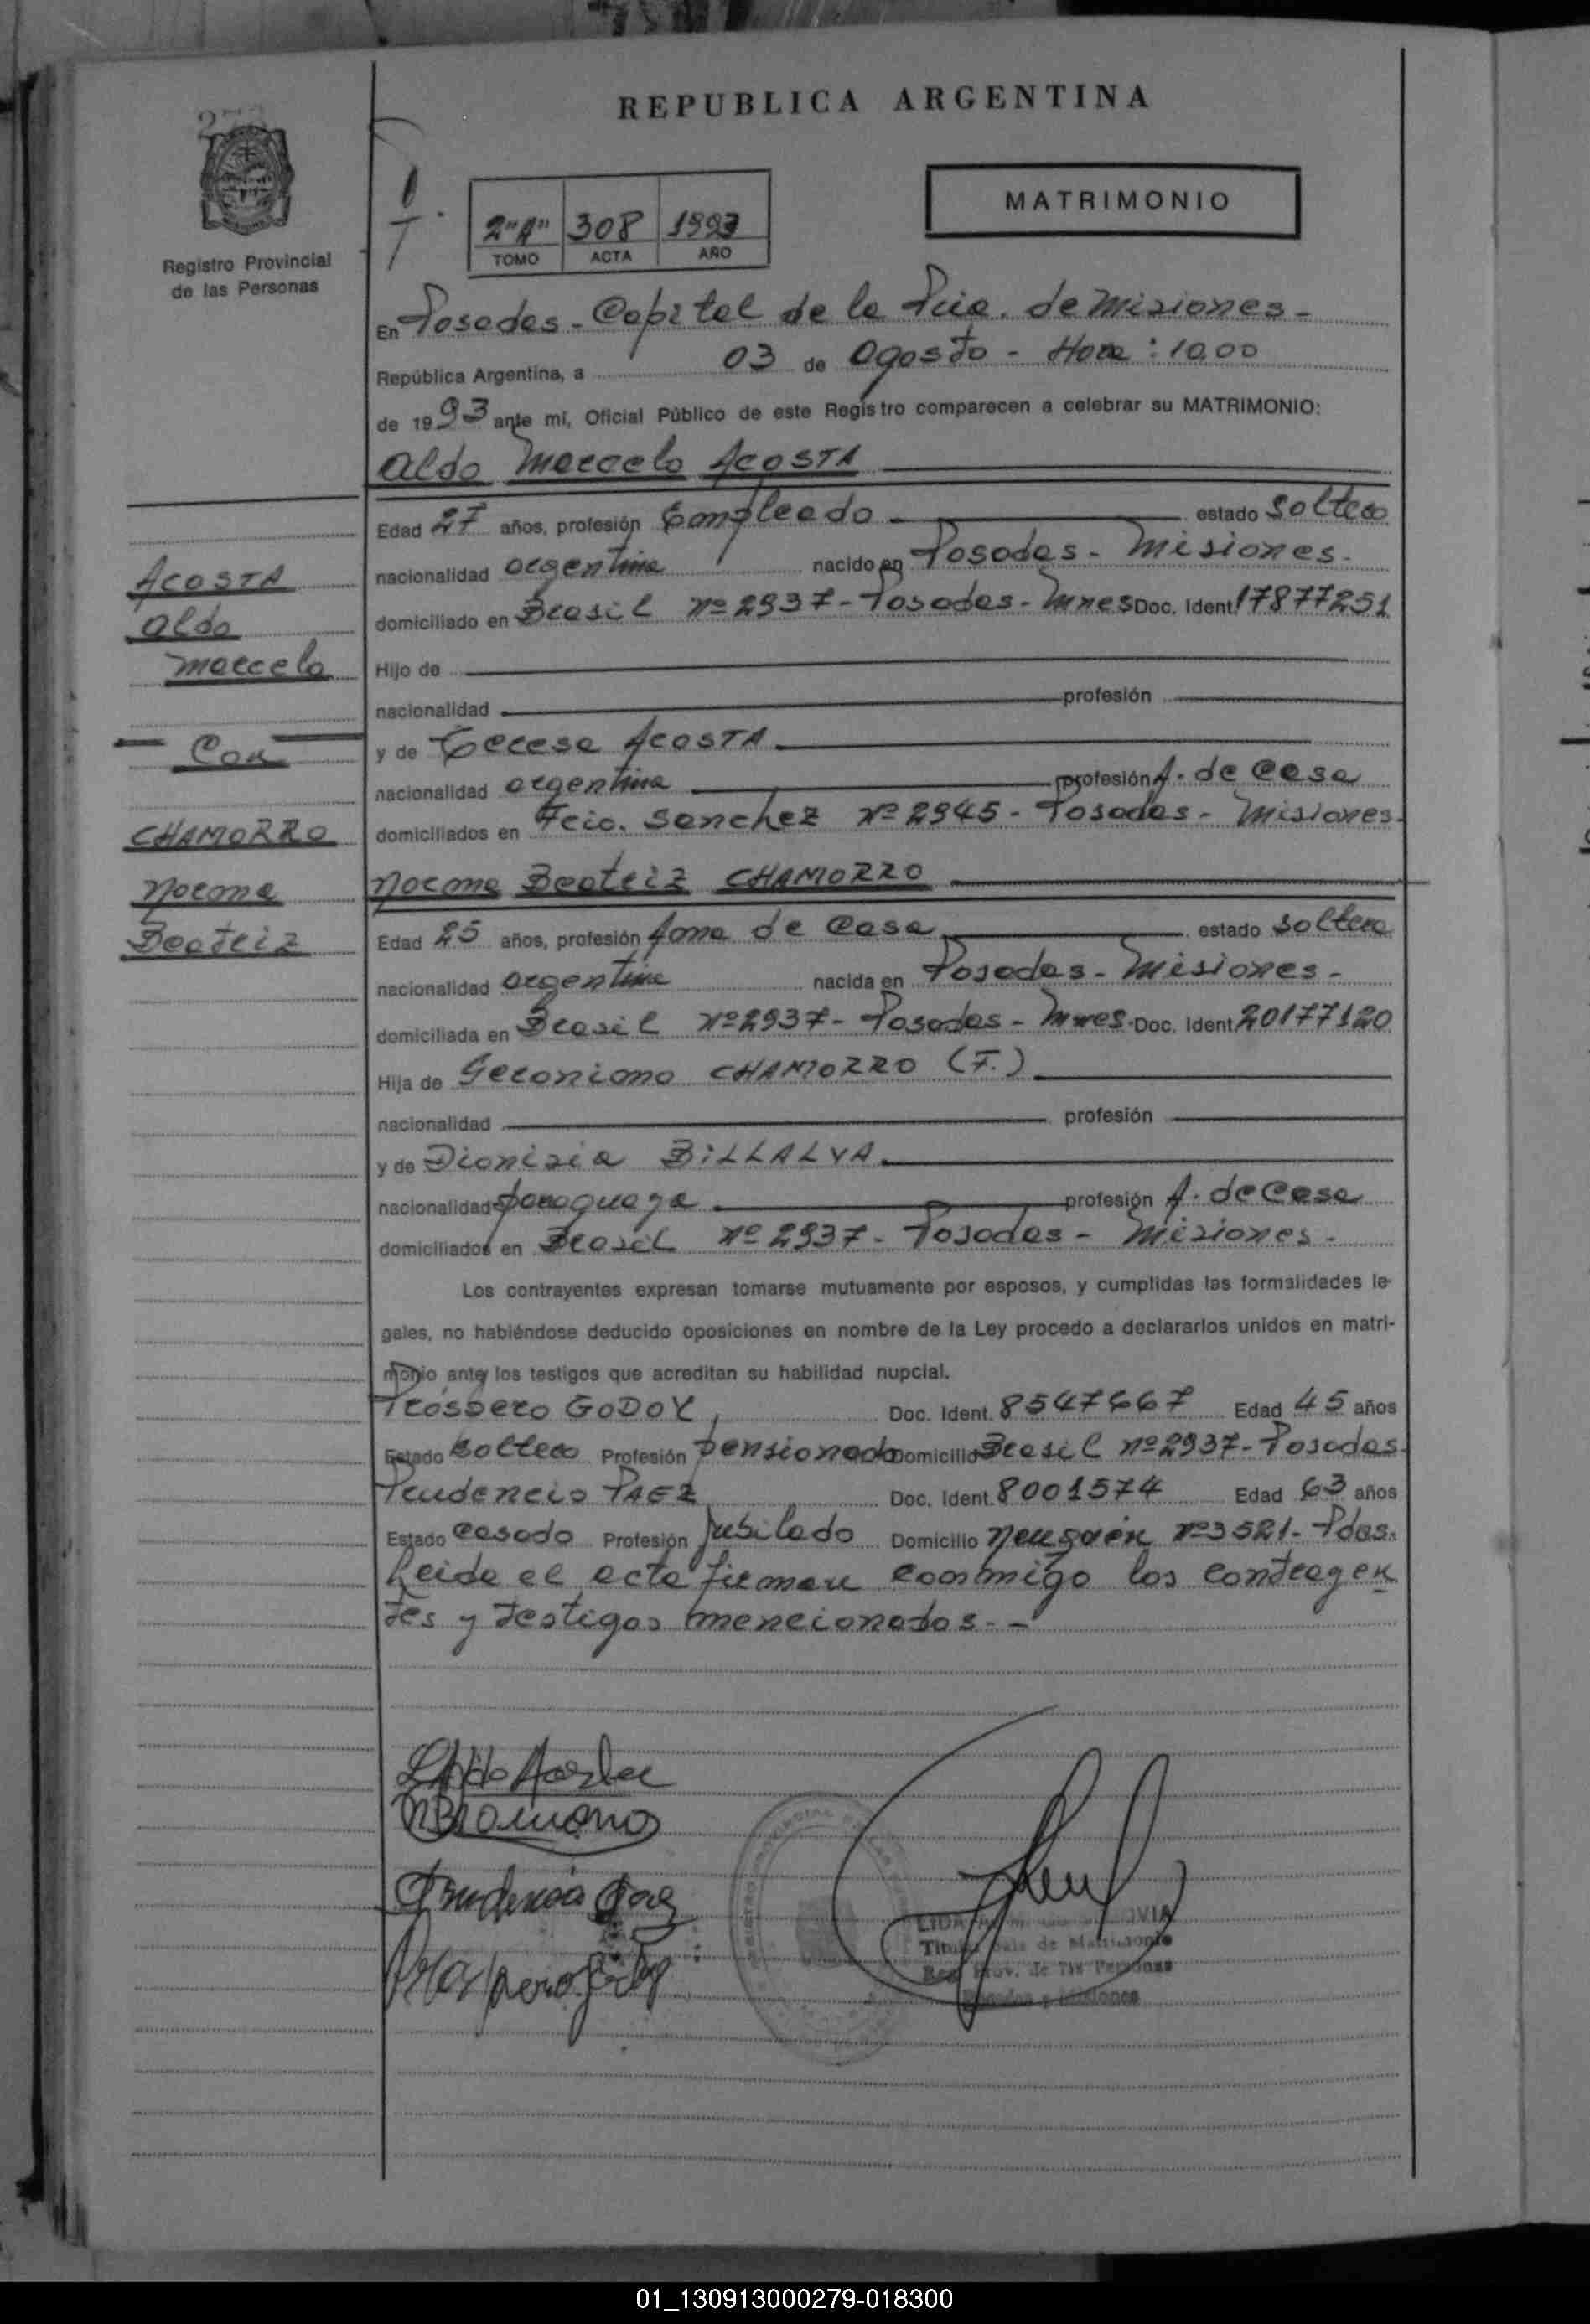 REPUBLICA ARGENTINA
MATRIMONIO
2"A" 308 1993
TOMO ACTA AÑO
Registro Provincial
de las Personas
En Posadas - Capital de la Pcia. de Misiones -
República Argentina, a 03 de Agosto - Hora: 10.00
de 1993 ante mí, Oficial Público de este Registro comparecen a celebrar su MATRIMONIO:
Aldo Marcelo ACOSTA
Edad 27 años, profesión Empleado estado Soltero
nacionalidad argentina nacido en Posadas - Misiones -
domiciliado en Brasil Nº 2937 - Posadas - Mnes Doc. Ident. 17877251
Hijo de
nacionalidad profesión
y de Teresa ACOSTA
nacionalidad argentina profesión A. de Casa
domiciliados en Fcio. Sanchez Nº 2945 - Posadas - Misiones -
Norma Beatriz CHAMORRO
Edad 25 años, profesión Ama de Casa estado Soltera
nacionalidad argentina nacida en Posadas - Misiones -
domiciliada en Brasil Nº 2937 - Posadas - Mnes. Doc. Ident. 20177120
Hija de Geronimo CHAMORRO (F.)
nacionalidad profesión
y de Dionisia BILLALVA
nacionalidad paraguaya profesión A. de Casa
domiciliados en Brasil Nº 2937 - Posadas - Misiones -
Los contrayentes expresan tomarse mutuamente por esposos, y cumplidas las formalidades le-
gales, no habiéndose deducido oposiciones en nombre de la Ley procedo a declararlos unidos en matri-
monio ante los testigos que acreditan su habilidad nupcial.
Prospero GODOY, Doc. Ident. 8547667 Edad 45 años
Estado Soltero Profesión pensionado Domicilio Brasil Nº 2937 - Posadas.
Prudencio PAEZ Doc. Ident. 8001574 Edad 63 años
Estado Casado Profesión Jubilado Domicilio Neuquén Nº 3521 - Pdas.
Leida el acta firman conmigo los contrayen
tes y testigos mencionados - -
ACOSTA
Aldo
Marcelo
Con
CHAMORRO
Norma
Beatriz
Aldo Acosta
Prudencio Paez
Prospero Godoy
LIDA
Titular Sala de Matrimonio
Reg. Prov. de las Personas
Posadas - Misiones
01_130913000279-018300